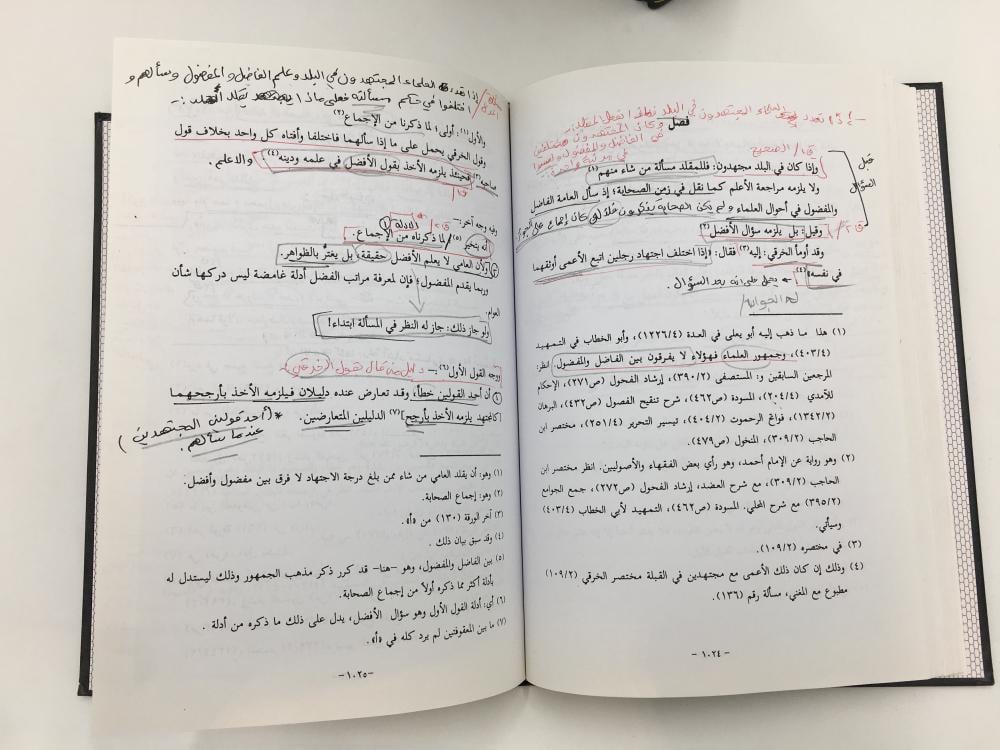 إذا تعدد العلماء المجتهدون في البلد
فصل
ق١/ الصحيح
قبل
السؤال
وإذا كان في البلد مجتهدون: فللمقلد مسألة من شاء منهم (١)
ولا يلزمه مراجعة الأعلم كما نقل في زمن الصحابة؛ إذ سأل العامة الفاضل
والمفضول في أحوال العلماء
ق٢/
وقيل: بل يلزمه سؤال الأفضل (٢)
وقد أومأ الخرقي: إليه (٣) فقال: «إذا اختلف اجتهاد رجلين اتبع الأعمى أوثقهما
في نفسه» (٤) يحمل على أنه بعد السؤال.
(١) هذا ما ذهب إليه أبو يعلى في العدة (١٢٢٦/٤)، وأبو الخطاب في التمهيد
(٤٠٣/٤)، وجمهور العلماء فهؤلاء لا يفرقون بين الفاضل والمفضول. انظر:
المرجعين السابقين و: المستصفى (٣٩٠/٢)، إرشاد الفحول (ص٢٧١)، الإحكام
للآمدي (٢٠٤/٤)، المسودة (ص٤٦٢)، شرح تنقيح الفصول (ص٤٣٢)، البرهان
(١٣٤٢/٢)، فواتح الرحموت (٤٠٤/٢)، تيسير التحرير (٢٥١/٤)، مختصر ابن
الحاجب (٣٠٩/٢)، المنخول (ص٤٧٩).
(٢) وهو رواية عن الإمام أحمد، وهو رأي بعض الفقهاء والأصوليين. انظر مختصر ابن
الحاجب (٣٠٩/٢)، مع شرح العضد، إرشاد الفحول (ص٢٧٢)، جمع الجوامع
(٣٩٥/٢) مع شرح المحلي. المسودة (ص٤٦٢)، التمهيد لأبي الخطاب (٤٠٣/٤)
وسيأتي.
(٣) في مختصره (١٠٩/٢).
(٤) وذلك إن كان ذلك الأعمى مع مجتهدين في القبلة مختصر الخرقي (١٠٩/٢)
مطبوع مع المغني، مسألة رقم (١٣٦).
-١٠٢٤-
إذا تعدد العلماء المجتهدون في البلد وعلم الفاضل والمفضول وسألهم و
اختلفوا في حكم مسألته فعلى ماذا
والأول (١): أولى؛ لما ذكرنا من الإجماع (٢)
وقول الخرقي يحمل على ما إذا سألهما فاختلفا وأفتاه كل واحد بخلاف قول
صاحبه (٣) فحينئذ يلزمه الأخذ بقول الأفضل في علمه ودينه (٤) والاعلم.
ق١/
وفيه وجه آخر:-
الأدلة
ق٢
أنه يتخير (٥) لما ذكرناه من الإجماع.
ولأن العامي لا يعلم الأفضل حقيقة، بل يغتر بالظواهر.
وربما يقدم المفضول؛ فإن لمعرفة مراتب الفضل أدلة غامضة ليس دركها شأن
العوام.
ولو جاز ذلك: جاز له النظر في المسألة ابتداء!
ووجه القول الأول (٦):-
أن أحد القولين خطأ، وقد تعارض عنده دليلان فيلزمه الأخذ بأرجحهما
[كالمجتهد يلزمه الأخذ بأرجح] (٧) الدليلين المتعارضين.
* (أحد قولين المجتهدين
عندما سألهم. )
(١) وهو: أن يقلد العامي من شاء ممن بلغ درجة الاجتهاد لا فرق بين مفضول وأفضل.
(٢) وهو: إجماع الصحابة.
(٣) آخر الورقة (١٣٠) من «أ».
(٤) وقد سبق بيان ذلك .
(٥) بين الفاضل والمفضول، وهو -هنا- قد كرر ذكر مذهب الجمهور وذلك ليستدل له
بأدلة أكثر مما ذكره أولاً من إجماع الصحابة.
(٦) أي: أدلة القول الأول وهو سؤال الأفضل، يدل على ذلك ما ذكره من أدلة .
(٧) ما بين المعقوفتين لم يرد كله في «أ».
-١٠٢٥-